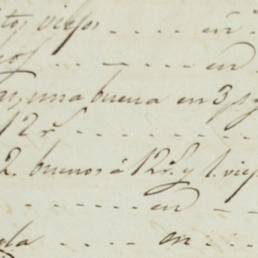 viejos .... en
.... en
una buena en 3 p
12 r.s ........
2. buenos á 12 r.s y 1. viej
.... en ..
.... en ....